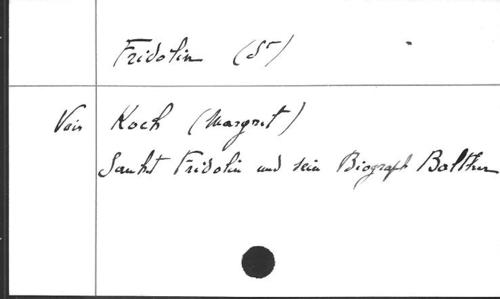 Fridolin (St)
Voir Koch (Margrit)
Sankt Fridolin und sein Biograph Balther